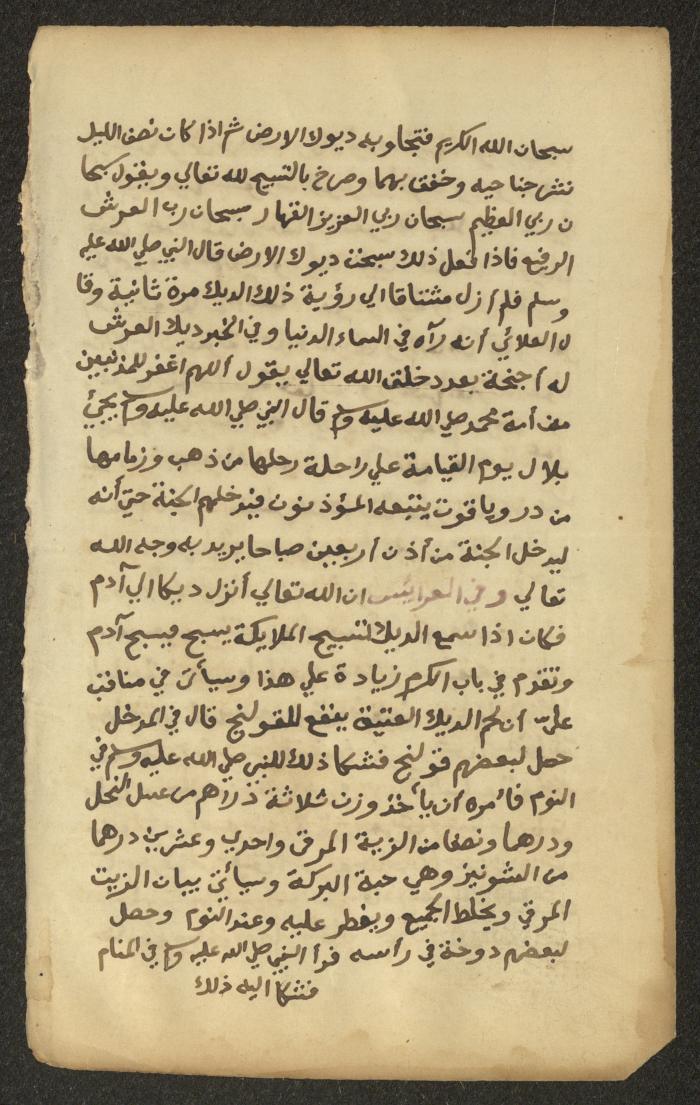 سبحان الله الكريم فتجاوبه ديوك الارض ثم اذا كان نصف الليل
نشر جناحيه وخفق بهما وصرخ بالتسبيح لله تعالي ويقول سبحا
ن ربي العظيم سبحان ربي العزيز القهار سبحان رب العرش
الرفيع فاذا فعل ذلك سبحت ديوك الارض قال النبي صلي الله عليه
وسلم فلم أزل مشتاقا الي رؤية ذلك الديك مرة ثانية وقا
ل العلائي أنه رآه في السماء الدنيا وفي الخبر ديك العرش
له أجنحة بعدد خلق الله تعالي يقول أللهم اغفر للمذنبين
من أمة محمد صلي الله عليه وسلم قال النبي صلي الله عليه وسلم يجئ
بلال يوم القيامة علي راحلة رحلها من ذهب وزمامها
من در وياقوت يتبعه المؤذنون فيدخلهم الجنة حتي أنه
ليدخل الجنة من أذن أربعين صباحا يريد به وجه الله
تعالي وفي العرايس ان الله تعالي أنزل ديكا الي آدم
فكان اذا سمع الديك تسبيح الملايكة يسبح فيسبح آدم
وتقدم في باب الكرم زيادة علي هذا وسيأتي في مناقب
علي أن لحم الديك العتيق ينفع للقولنج قال في المدخل
حصل لبعضهم قولنج فشكا ذلك للنبي صلي الله عليه وسلم في
النوم فأمره أن يأخذ وزن ثلاثة دراهم من عسل النحل
ودرهما ونصفا من الزيت المرقي واحدي وعشرين درهما
من الشونيز وهي حبة البركة وسيأتي بيان الزيت
المرقي ويخلط الجميع ويفطر عليه وعند النوم وحصل
لبعضهم دوخة في رأسه فرأ النبي صلي الله عليه وسلم في المنام
فشكا اليه ذلك